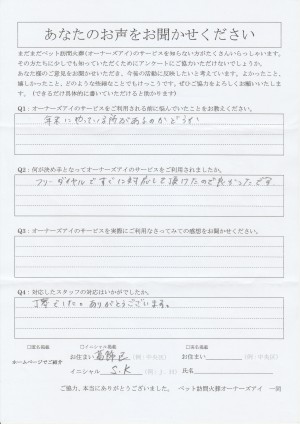 あなたのお声をお聞かせください
まだまだペット訪問火葬(オーナーズアイ)のサービスを知らない方がたくさんいらっしゃいます。
その方たちに少しでも知っていただくためにアンケートにご協力いただけないでしょうか。
あなた様のご意見をお聞かせいただき、今後の活動に反映したいと考えています。よかったこと、
嬉しかったこと、どのような些細なことでもけっこうです。ぜひご協力をよろしくお願いいたしま
す。(できるだけ具体的に書いていただけると助かります)
Q1:オーナーズアイのサービスをご利用される前に悩んでいたことをお教えください。
年末にやっている所があるのかどうか
Q2:何が決め手となってオーナーズアイのサービスをご利用されましたか。
フリーダイヤルですぐに対応して頂けたので良かったです
Q3:オーナーズアイのサービスを実際にご利用なさってみての感想をお聞かせください。
Q4:対応したスタッフの対応はいかがでしたか。
丁寧でした。ありがとうございます。
□匿名掲載 □イニシャル掲載 □実名掲載
ホームページでご紹介
お住まい 葛飾区 (例:中央区) お住まい (例:中央区)
イニシャル S.K (例:J.H) 氏名
ご協力、本当にありがとうございました。 ペット訪問火葬オーナーズアイ 一同